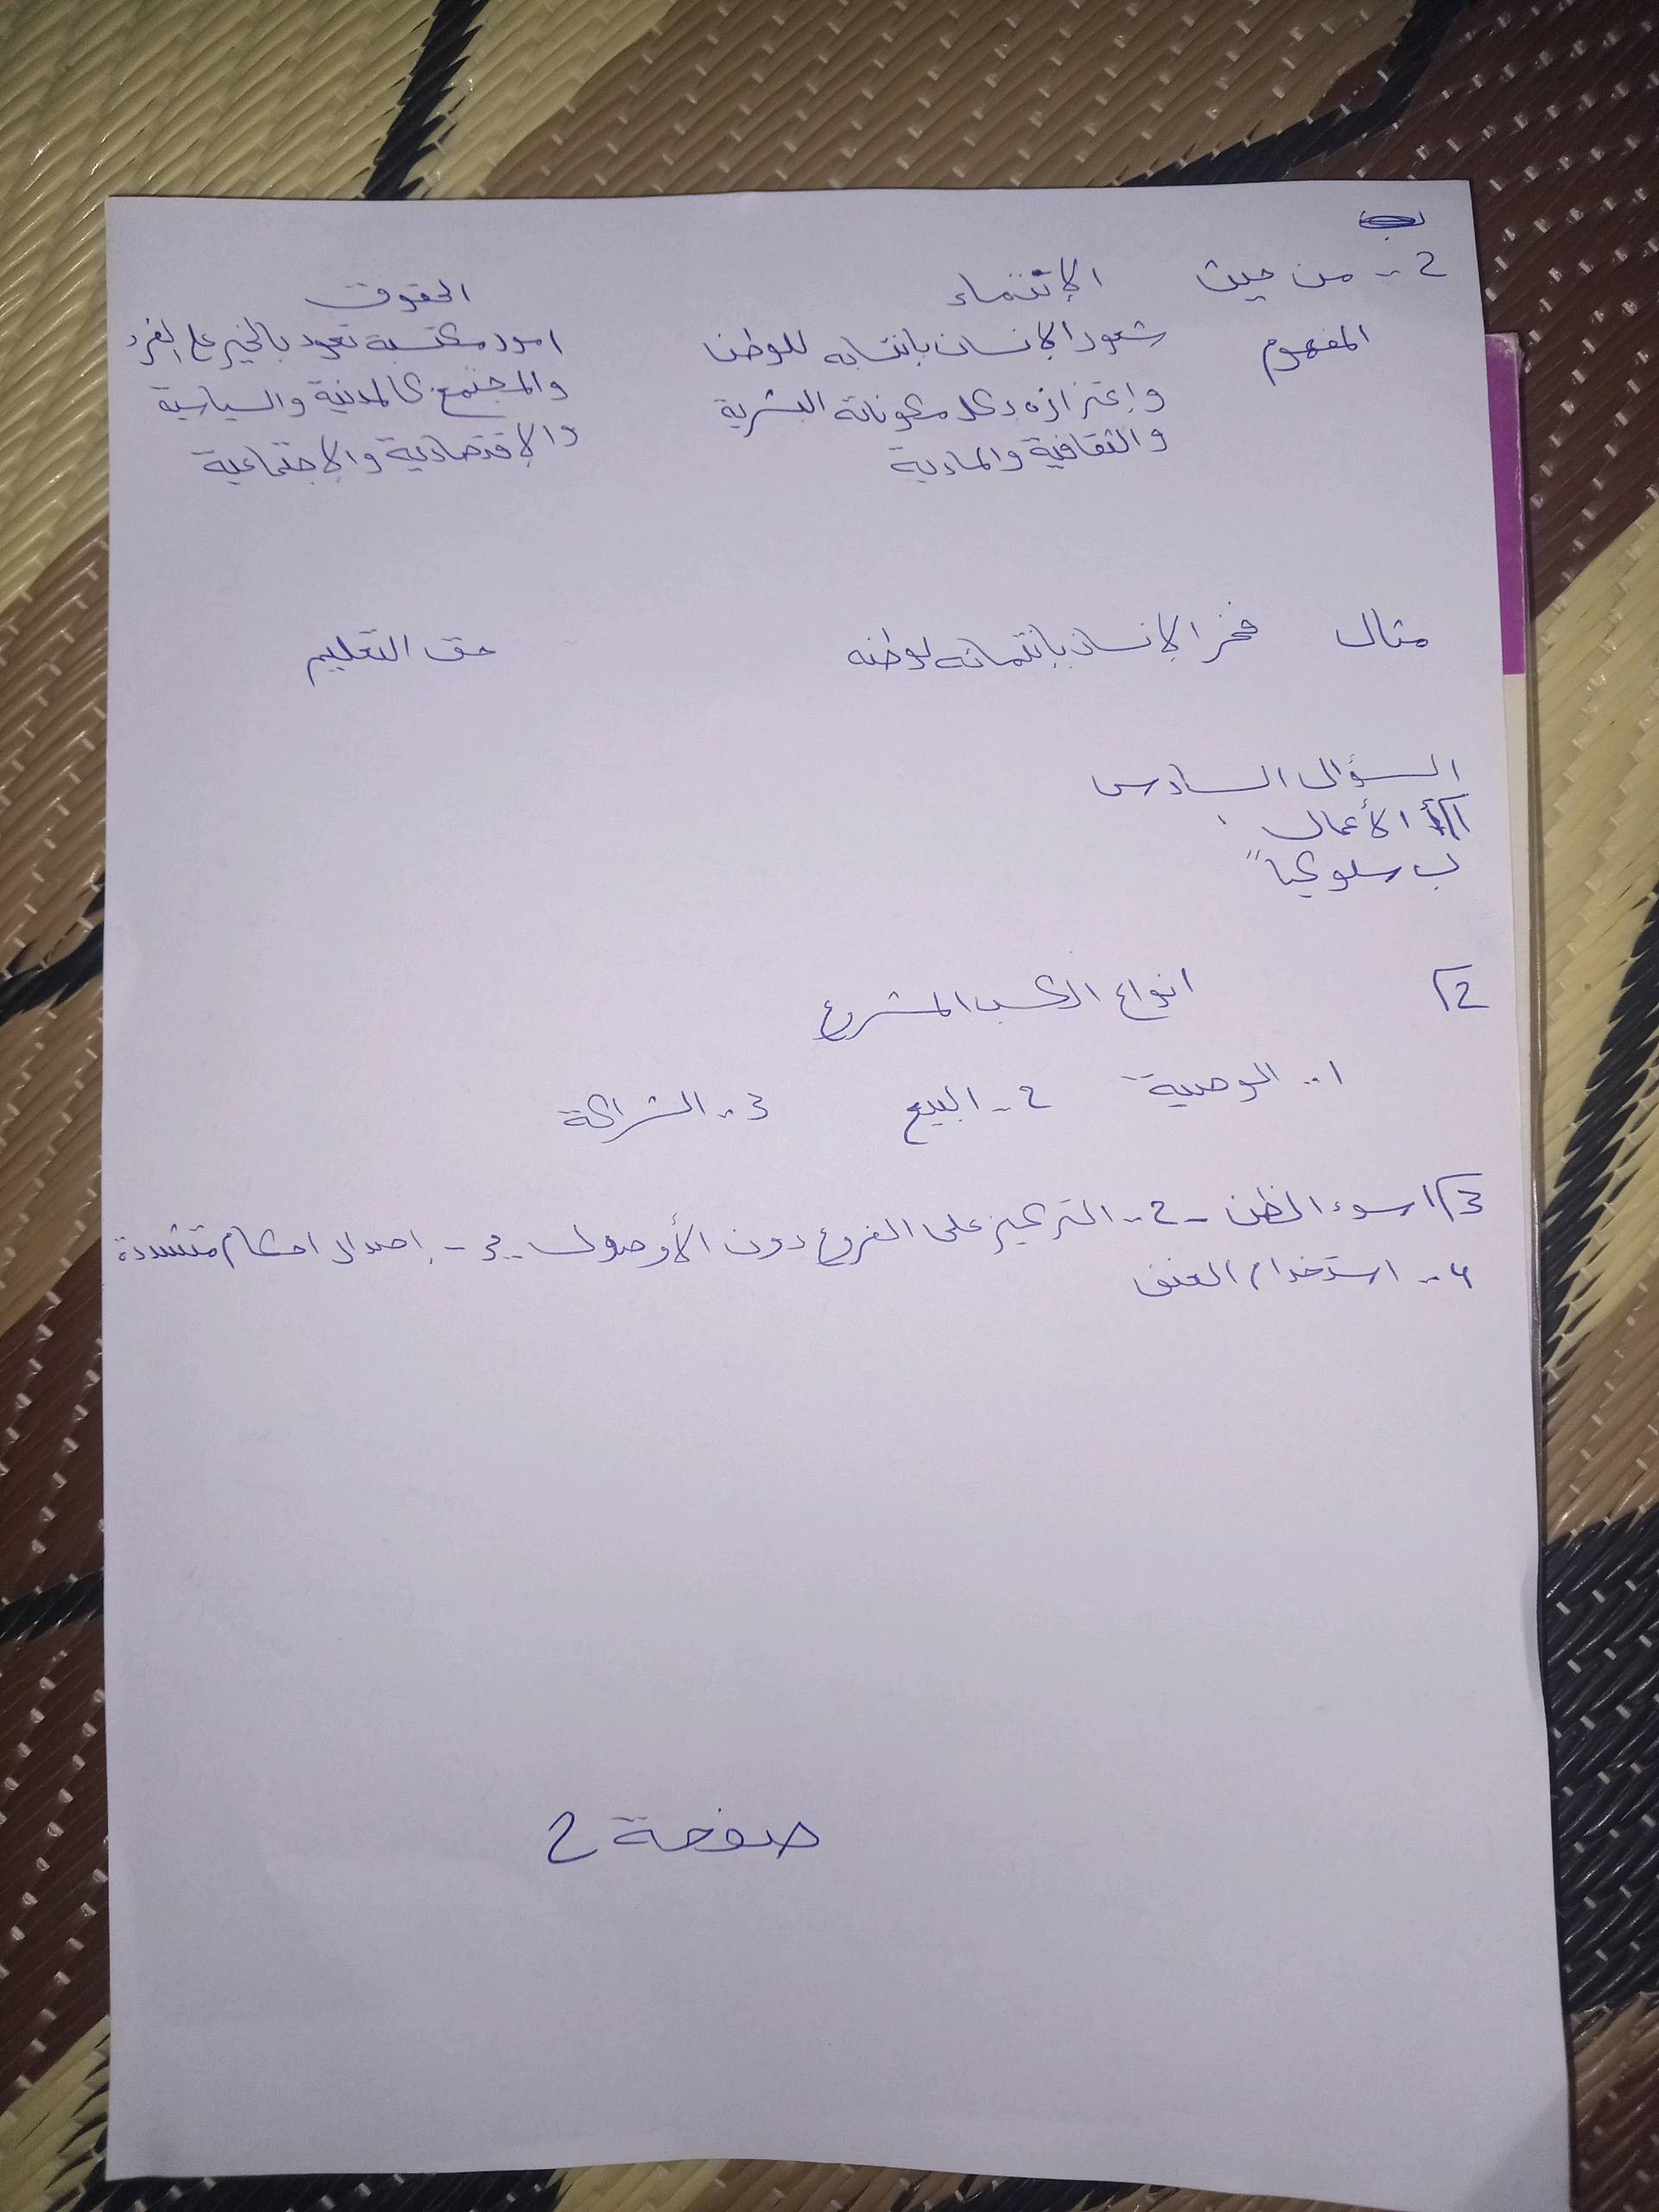 2 -- من حيث الإنتماء الحقوق
المفهوم شعور الإنسان بانتسابه للوطن امور مكتسبة تعود بالخير على الفرد
واعتزازه بكل مكوناته البشرية والمجتمع كالمدنية والسياسية
والثقافية والمادية والإقتصادية والإجتماعية
مثال فخر الإنسان بإنتمائه لوطنه حق التعليم
السؤال السادس
أ الأعمال
ب سلوكياً
2 انواع الكسب المشروع
1 -- الوصية 2 - البيع 3 -- الشراكة
3 1 سوء الظن - 2 - التركيز على الفروع دون الأصول - 3 - إصدار احكام متشددة
4 -- استخدام العنف
صفحة 2